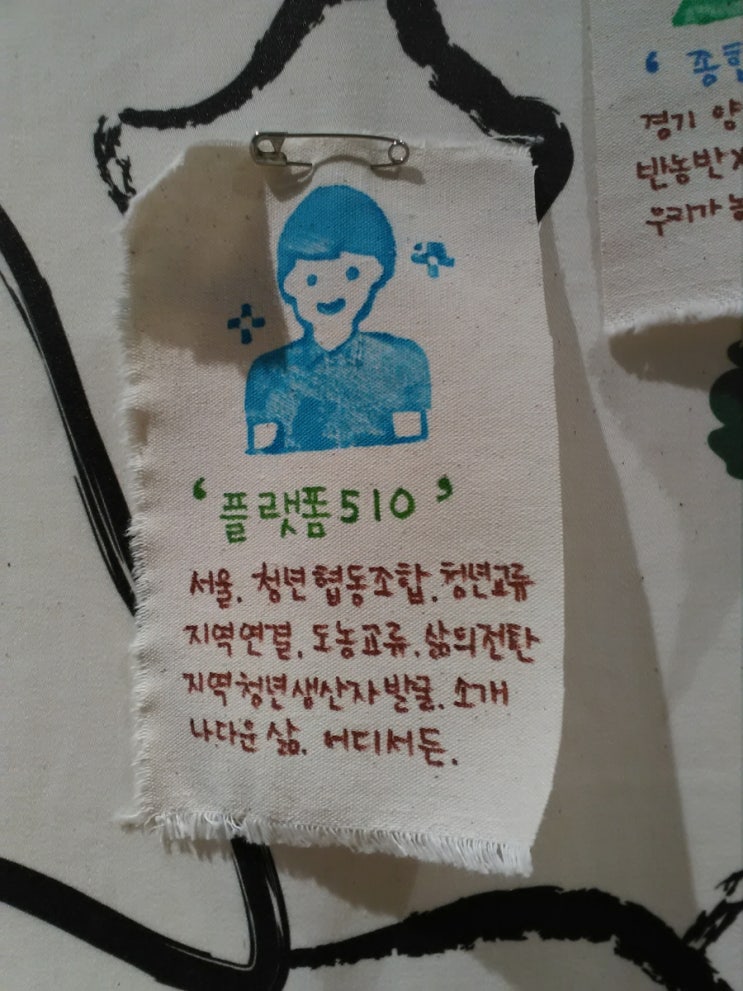 ‘플랫폼510’
서울. 청년협동조합. 청년교류
지역연결. 도농교류. 삶의전탄
지역청년생산자발굴. 소개
나다운삶. 어디서든.
‘종합
경기 양
반농반X
우리가 농